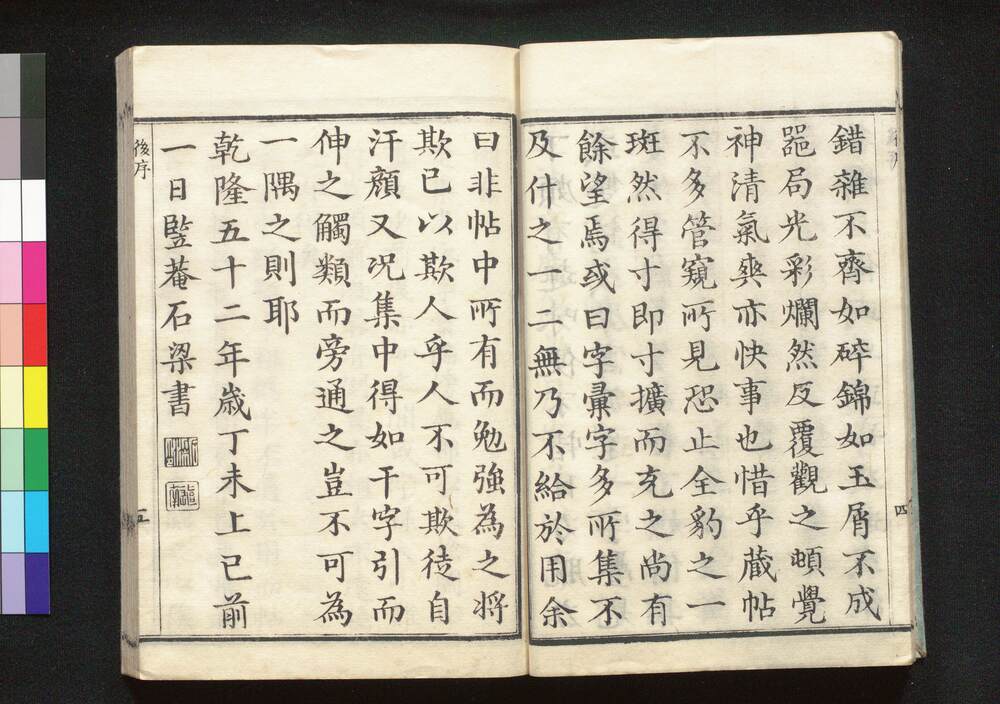 錯雜不齊如碎錦如玉屑不成
噐局光彩爛然反覆觀之頓覺
神清氣爽亦快事也惜乎蔵帖
不多管窺所見恐止全豹之一
斑然得寸即寸擴而充之尚有
餘望焉或曰字彙字多所集不
及什之一二無乃不給於用余
四
曰非帖中所有而勉強為之将
欺已以欺人乎人不可欺徒自
汗顔又况集中得如干字引而
伸之觸類而旁通之豈不可為
一隅之則耶
乾隆五十二年歳丁未上已前
一日監菴石梁書
後序
五